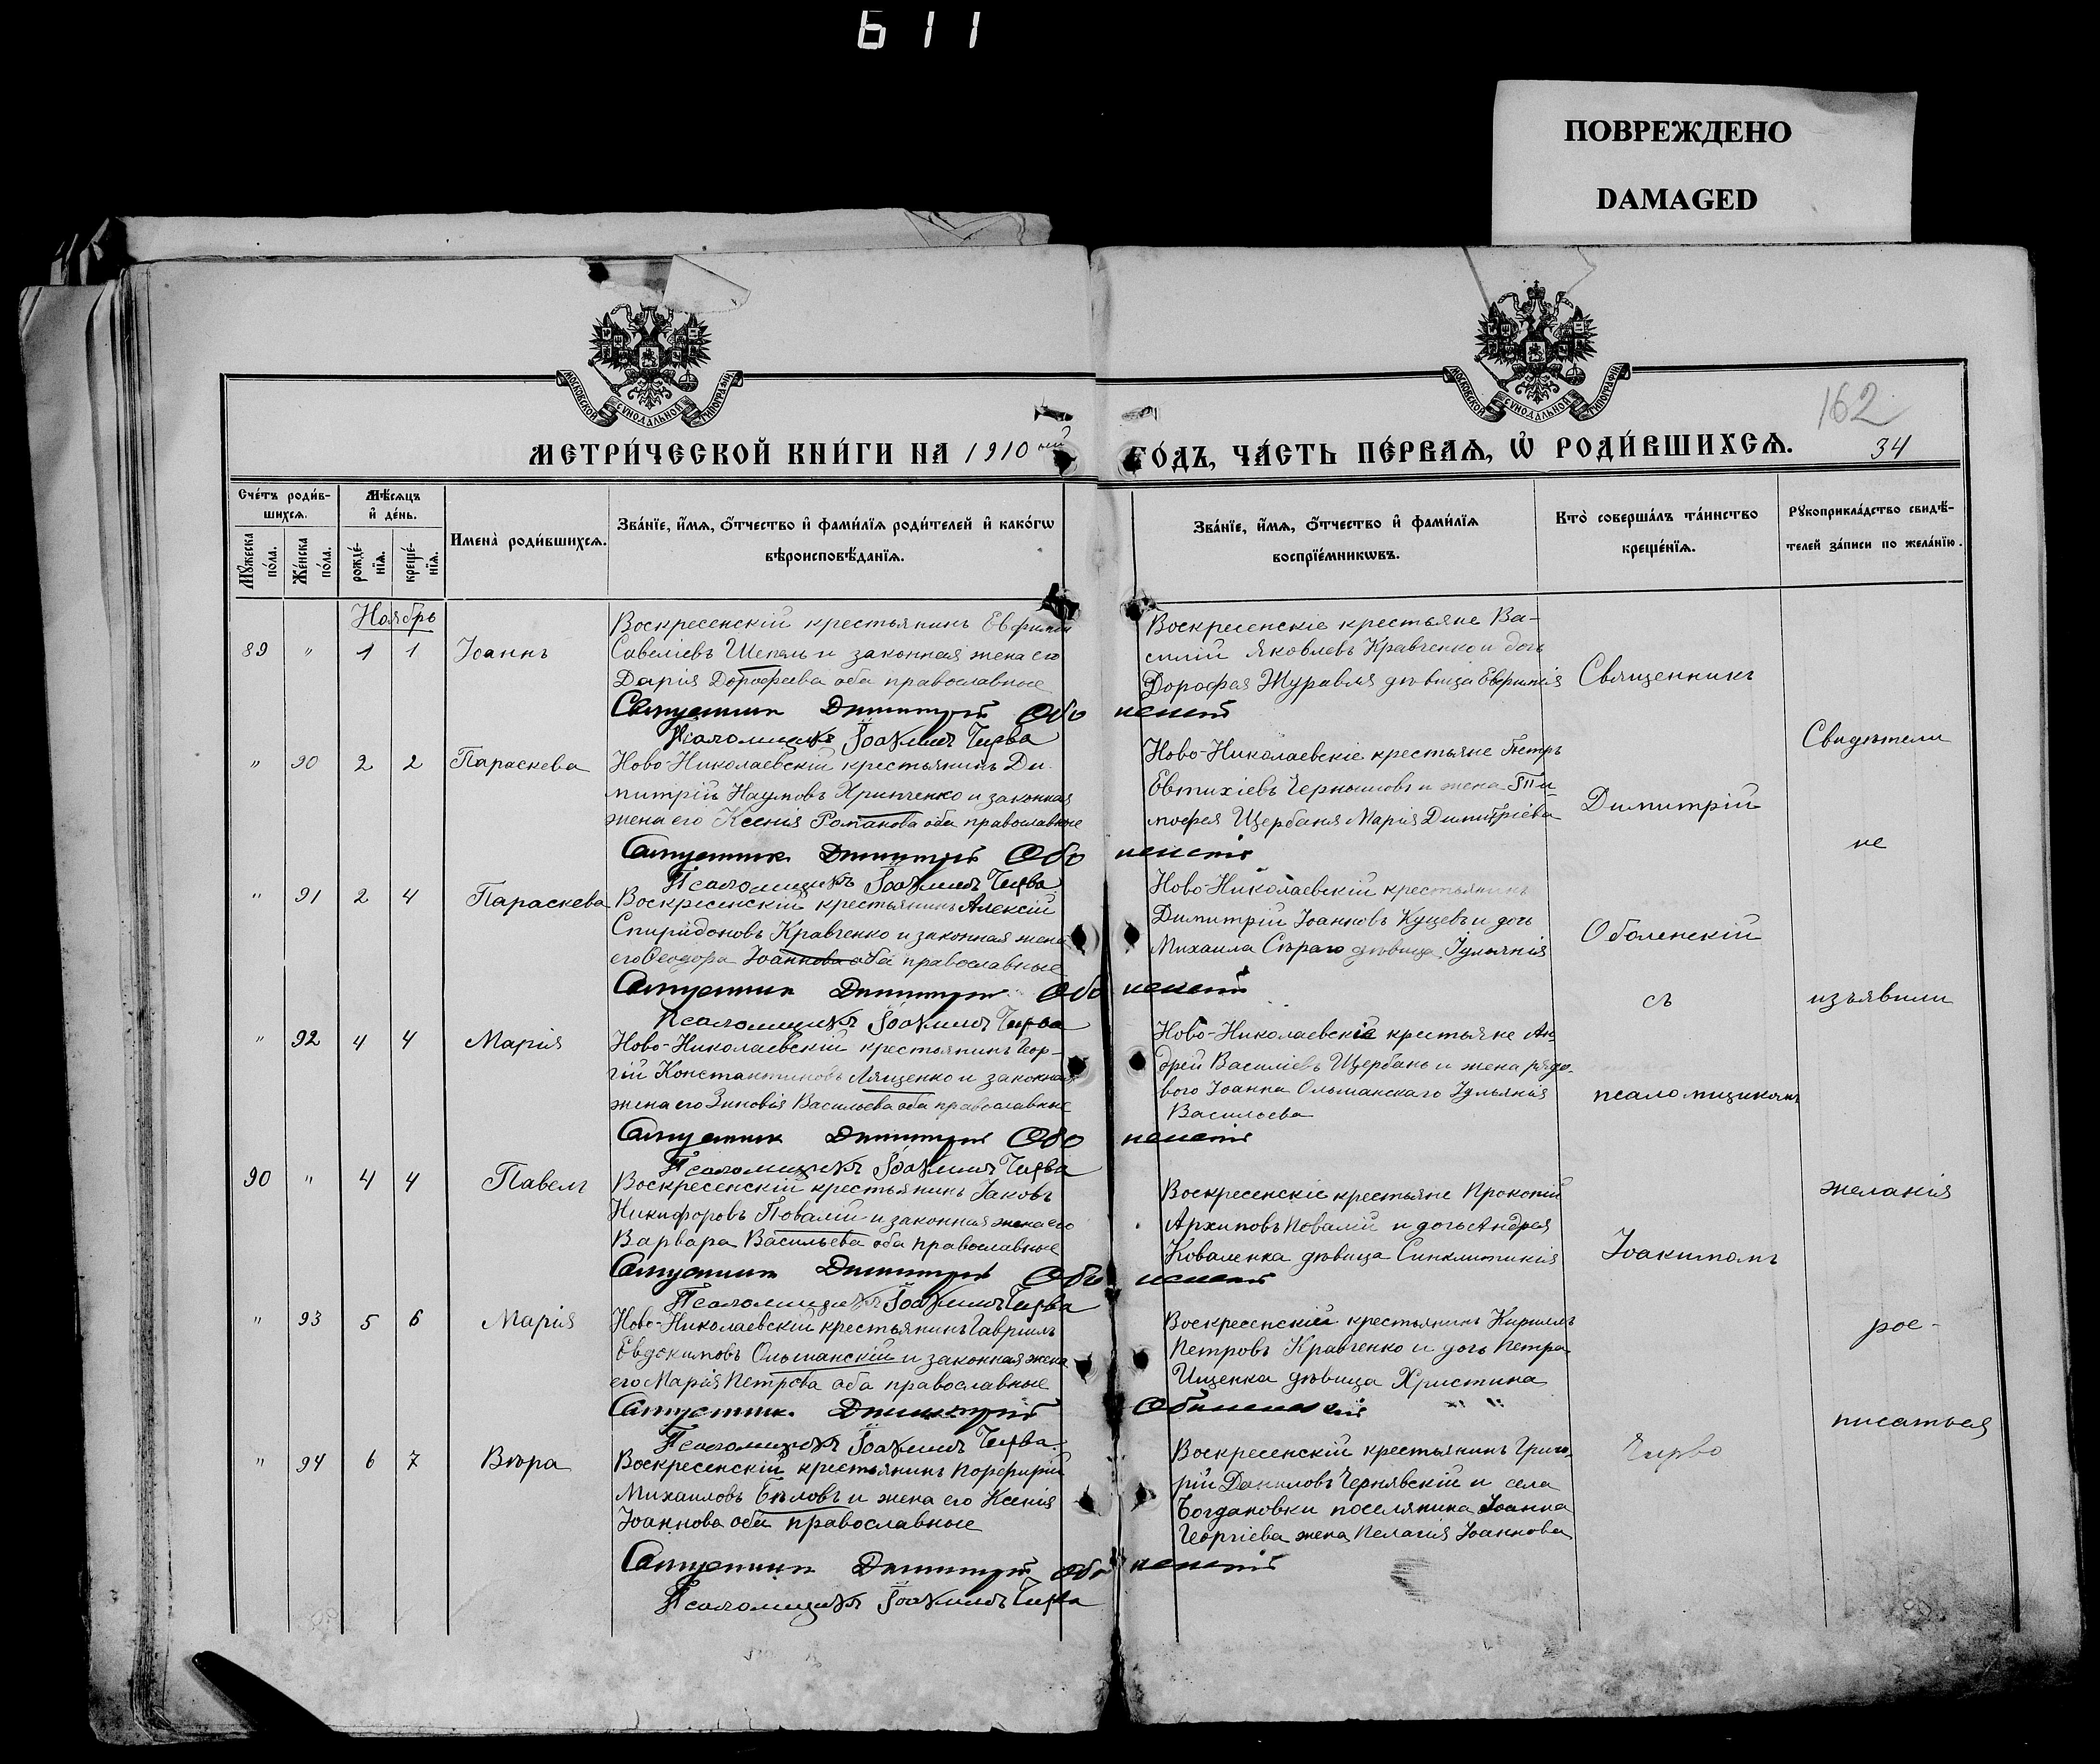 611
ПОВРЕЖДЕНО
DAMAGED
МОСКОВСКОЙ СУНОДАЛЬНОЙ ТИПОГРАФІИ
МОСКОВСКОЙ СУНОДАЛЬНОЙ ТИПОГРАФІИ
162
МЕТРИ́ЧЕСКОЙ КНИ́ГИ НА 1910 ый ГО́ДЪ, ЧА́СТЬ ПЕ́РВАѦ, Ѡ҆ РОДИ́ВШИХСѦ.
34
Сче́тъ роди́в-
шихсѧ.
Мѣ́сѧцъ
и҆ де́нь.
Мꙋ́жеска по́ла.
Же́нска по́ла.
рожде́-нїѧ.
креще́-нїѧ.
И҆мена̀ роди́вшихсѧ.
Зва́нїе, и҆́мѧ, ѻ҆́тчество и҆ фами́лїѧ роди́телей и҆ како́гѡ
вѣроисповѣ́данїѧ.
Зва́нїе, и҆́мѧ, ѻ҆́тчество и҆ фами́лїѧ
воспрїе́мникѡвъ.
Кто̀ соверша́лъ та́инство
креще́нїѧ.
Рꙋкоприкла́дство свидѣ́-
телей за́писи по жела́нїю.
Ноябрь
89 " 1 1 Іоаннъ
Воскресенскій крестьянинъ Евфимій
Савеліевъ Шепель и законная жена его
Дарія Дорофеева оба православные
Священникъ Димитрій Оболенскій
Псаломщикъ Іоакимъ Чирва
Воскресенскіе крестьяне Ва-
силій Яковлевъ Кравченко и дочь
Дорофея Журавля дѣвица Евфимія
" 90 2 2 Параскева
Ново-Николаевскій крестьянинъ Ди-
митрій Наумовъ Хрипченко и законная
жена его Ксенія Романова оба православные
Священникъ Димитрій Оболенскій
Псаломщикъ Іоакимъ Чирва
Ново-Николаевскіе крестьяне Петръ
Евтихіевъ Чернышовъ и жена Ти-
мофея Щербаня Марія Димитріева
" 91 2 4 Параскева
Воскресенскій крестьянинъ Алексій
Спиридоновъ Кравченко и законная жена
его Ѳеодора Іоаннова оба православные
Священникъ Димитрій Оболенскій
Псаломщикъ Іоакимъ Чирва
Ново-Николаевскій крестьянинъ
Димитрій Іоанновъ Куцевъ и дочь
Михаила Сѣраго дѣвица Іуліанія
" 92 4 4 Марія
Ново-Николаевскій крестьянинъ Геор-
гій Константиновъ Лященко и законная
жена его Зиновія Васильева оба православные
Священникъ Димитрій Оболенскій
Псаломщикъ Іоакимъ Чирва
Ново-Николаевскіе крестьяне Ан-
дрей Василіевъ Щербань и жена рядо-
вого Іоанна Ольшанскаго Іульянія
Васильева
90 " 4 4 Павелъ
Воскресенскій крестьянинъ Іаковъ
Никифоровъ Повалій и законная жена его
Варвара Васильева оба православные
Священникъ Димитрій Оболенскій
Псаломщикъ Іоакимъ Чирва
Воскресенскіе крестьяне Прокопій
Архиповъ Повалій и дочь Андрея
Коваленка дѣвица Синклитикія
" 93 5 6 Марія
Ново-Николаевскій крестьянинъ Гавріилъ
Евдокимовъ Ольшанскій и законная жена
его Марія Петрова оба православные
Священникъ Димитрій Оболенскій
Псаломщикъ Іоакимъ Чирва
Воскресенскій крестьянинъ Кириллъ
Петровъ Кравченко и дочь Петра
Ищенка дѣвица Христина
" 94 6 7 Вѣра
Воскресенскій крестьянинъ Порфирій
Михаиловъ Бѣловъ и жена его Ксенія
Іоаннова оба православные
Священникъ Димитрій Оболенскій
Псаломщикъ Іоакимъ Чирва
Воскресенскій крестьянинъ Григо-
рій Даниловъ Чернявскій и села
Богдановки поселянина Іоанна
Георгіева жена Пелагія Іоаннова
Священникъ
Димитрій
Оболенскій
съ
псаломщикомъ
Іоакимомъ
Чирво
Свидѣтели
не
изъявили
желанія
рос-
писаться